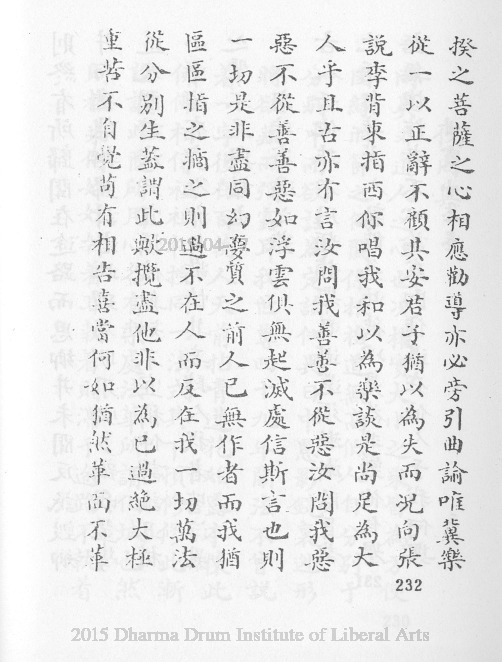 揆之菩薩之心相應勸導亦必旁引曲諭唯冀樂
從一以正辭不顧其安若子猶以為失而況向張
說李背東指西你唱我和以為樂談是尚足為大
人乎且古亦有言汝問我善善不從惡汝問我惡
惡不從善善惡如浮雲俱無起滅處信斯言也則
一切是非盡同幻夢質之前人已無作者而我猶
區區指之摘之則過不在人而反在我一切萬法
從分別生蓋謂此歟攬盡他非以為已過絶大極
重苦不自覺苟有相告喜當何如猶然革面不革
232
2015 Dharma Drum Institute of Liberal Arts